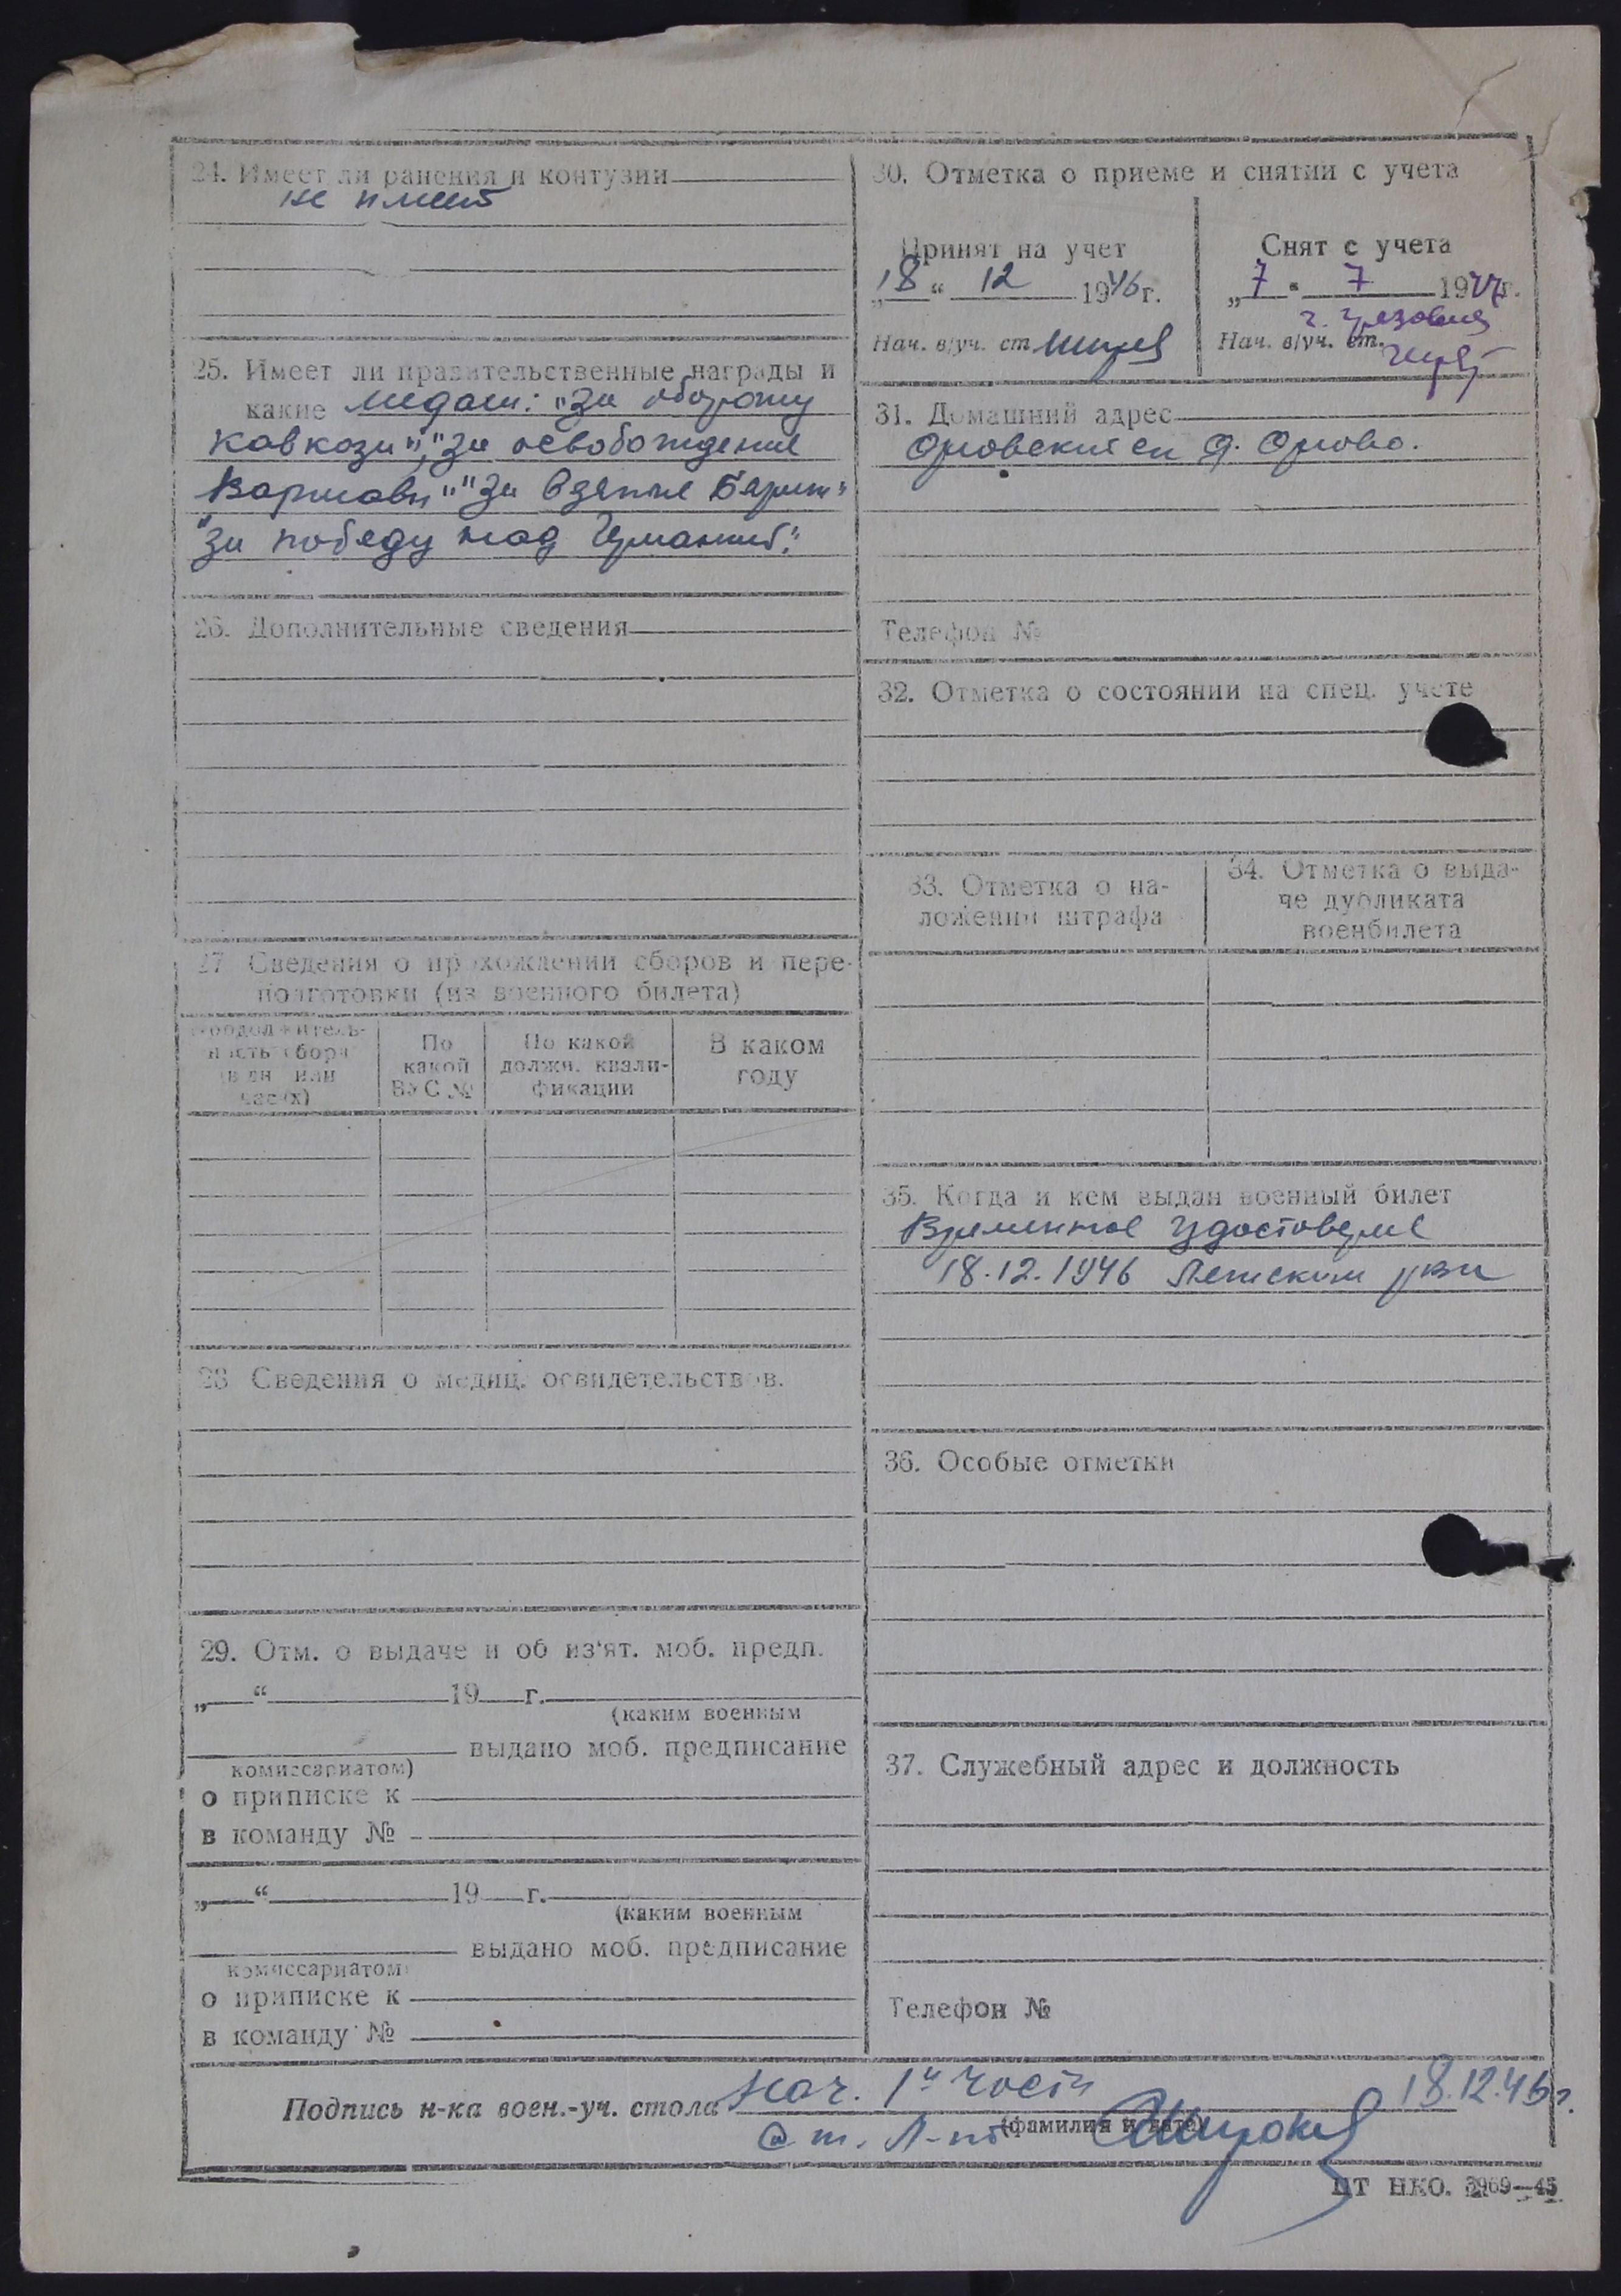 24. Имеет ли ранения и контузии
не имеет
25. Имеет ли правительственные награды и
какие медали: "За оборону
Кавказа", "за освобождение
Варшавы" "За взятие Берлин"
"за победу над Германией".
26. Дополнительные сведения
27 Сведения о прохождении сборов и пере-
подготовки (из военного билета)
Продолжитель-
ность сбора
(в дн или
час(х)
По
какой
ВУС №
По какой
должн. квали-
фикации
В каком
году
28 Сведения о медиц. освидетельствов.
29. Отм. о выдаче и об из'ят. моб. предп.
„ “ 19 г.
(каким военным
выдано моб. предписание
комиссариатом)
о приписке к
в команду №
„ “ 19 г.
(каким военным
выдано моб. предписание
комиссариатом)
о приписке к
в команду №
30. Отметка о приеме и снятии с учета
Принят на учет
„18“ 12 1946г.
Нач. в/уч. ст
Снят с учета
„7“ 7 19 г.
Нач. в/уч. ст.
31. Домашний адрес
Орловский с/с д. Орлово.
Телефон №
32. Отметка о состоянии на спец. учете
33. Отметка о на-
ложении штрафа
34. Отметка о выда-
че дубликата
военбилета
35. Когда и кем выдан военный билет
Временное удостовере
18.12.1946 рвк
36. Особые отметки
37. Служебный адрес и должность
Телефон №
Подпись н-ка воен.-уч. стола Нач. 1й части 18.12.46г.
(фамилия и дата)
Ст. Л-нт
ЦТ НКО. 3969—45